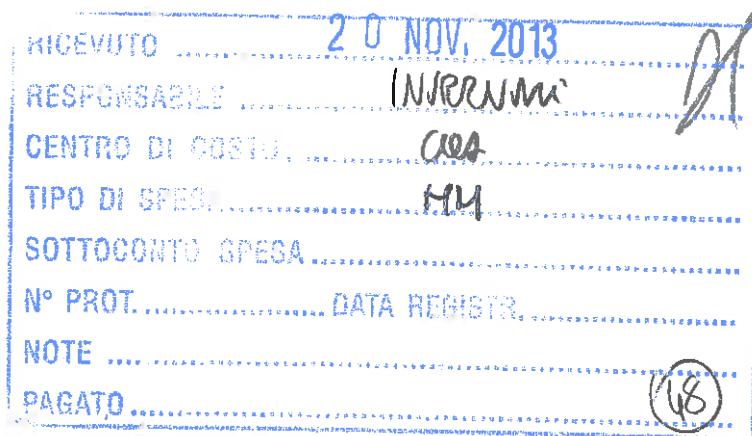 RICEVUTO 20 NOV. 2013
RESPONSABILE
CENTRO DI COSTO
TIPO DI SPESA
SOTTOCONTO SPESA
N° PROT. DATA REGISTR.
NOTE
PAGATO 48